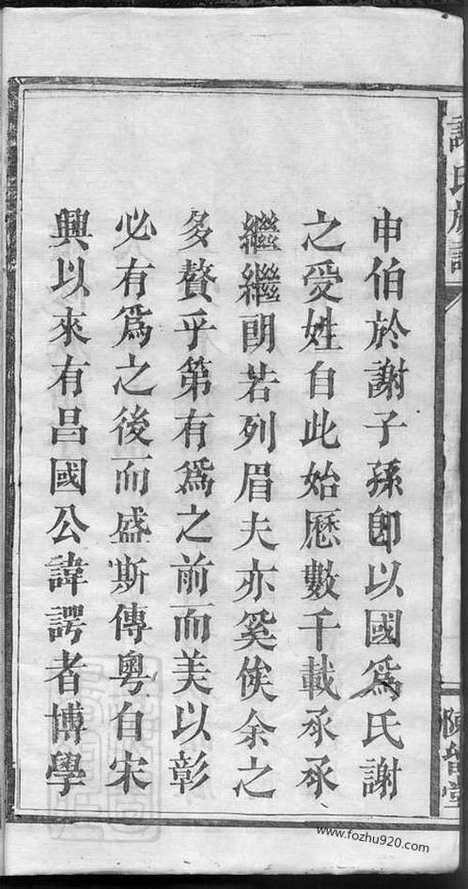 申伯於謝子孫即以國爲氏謝
之受姓自此始歷數千載承承
繼繼朗若列眉夫亦奚俟余之
多贅乎第有爲之前而美以彰
必有爲之後而盛斯傳粵自宋
興以來有昌國公諱諤者博學
謝氏族譜
陳留堂
www.fozhu920.com